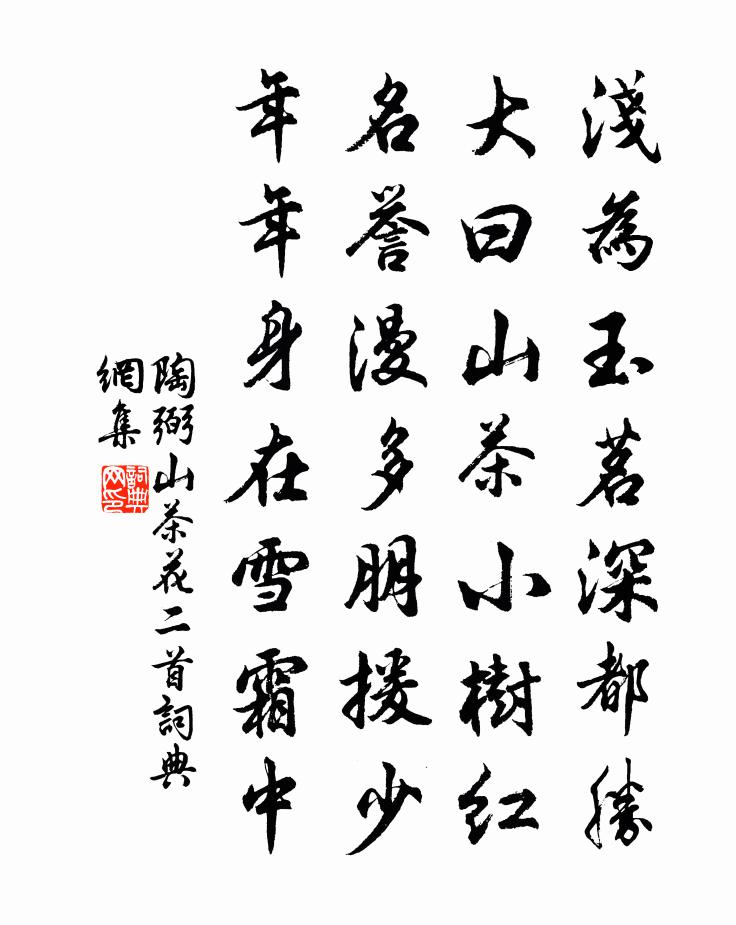 淺為玉茗深都勝
大曰山茶小樹紅
名譽漫多朋援少
年年身在雪霜中
陶弼山茶花二首詞典
網集
詞典
网印